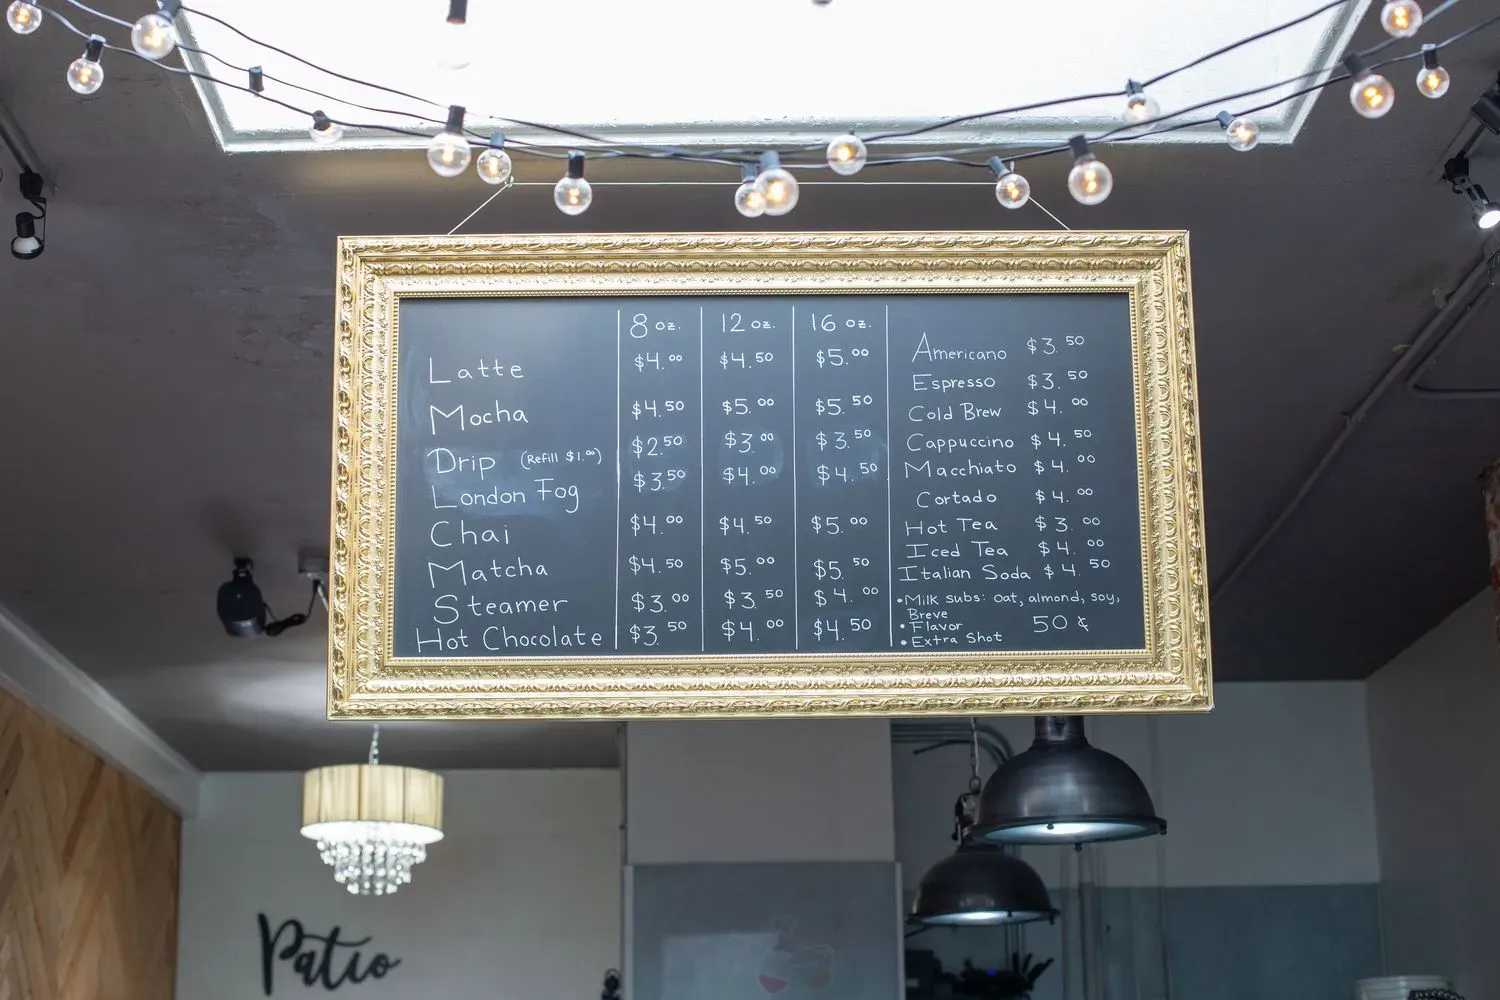 8 oz. 12 oz. 16 oz.
Latte $4.00 $4.50 $5.00
Mocha $4.50 $5.00 $5.50
Drip (Refill $1.00) $2.50 $3.00 $3.50
London Fog $3.50 $4.00 $4.50
Chai $4.00 $4.50 $5.00
Matcha $4.50 $5.00 $5.50
Steamer $3.00 $3.50 $4.00
Hot Chocolate $3.50 $4.00 $4.50
Americano $3.50
Espresso $3.50
Cold Brew $4.00
Cappuccino $4.50
Macchiato $4.00
Cortado $4.00
Hot Tea $3.00
Iced Tea $4.00
Italian Soda $4.50
•Milk subs: oat, almond, soy,
Breve
• Flavor 50¢
• Extra Shot
Patio